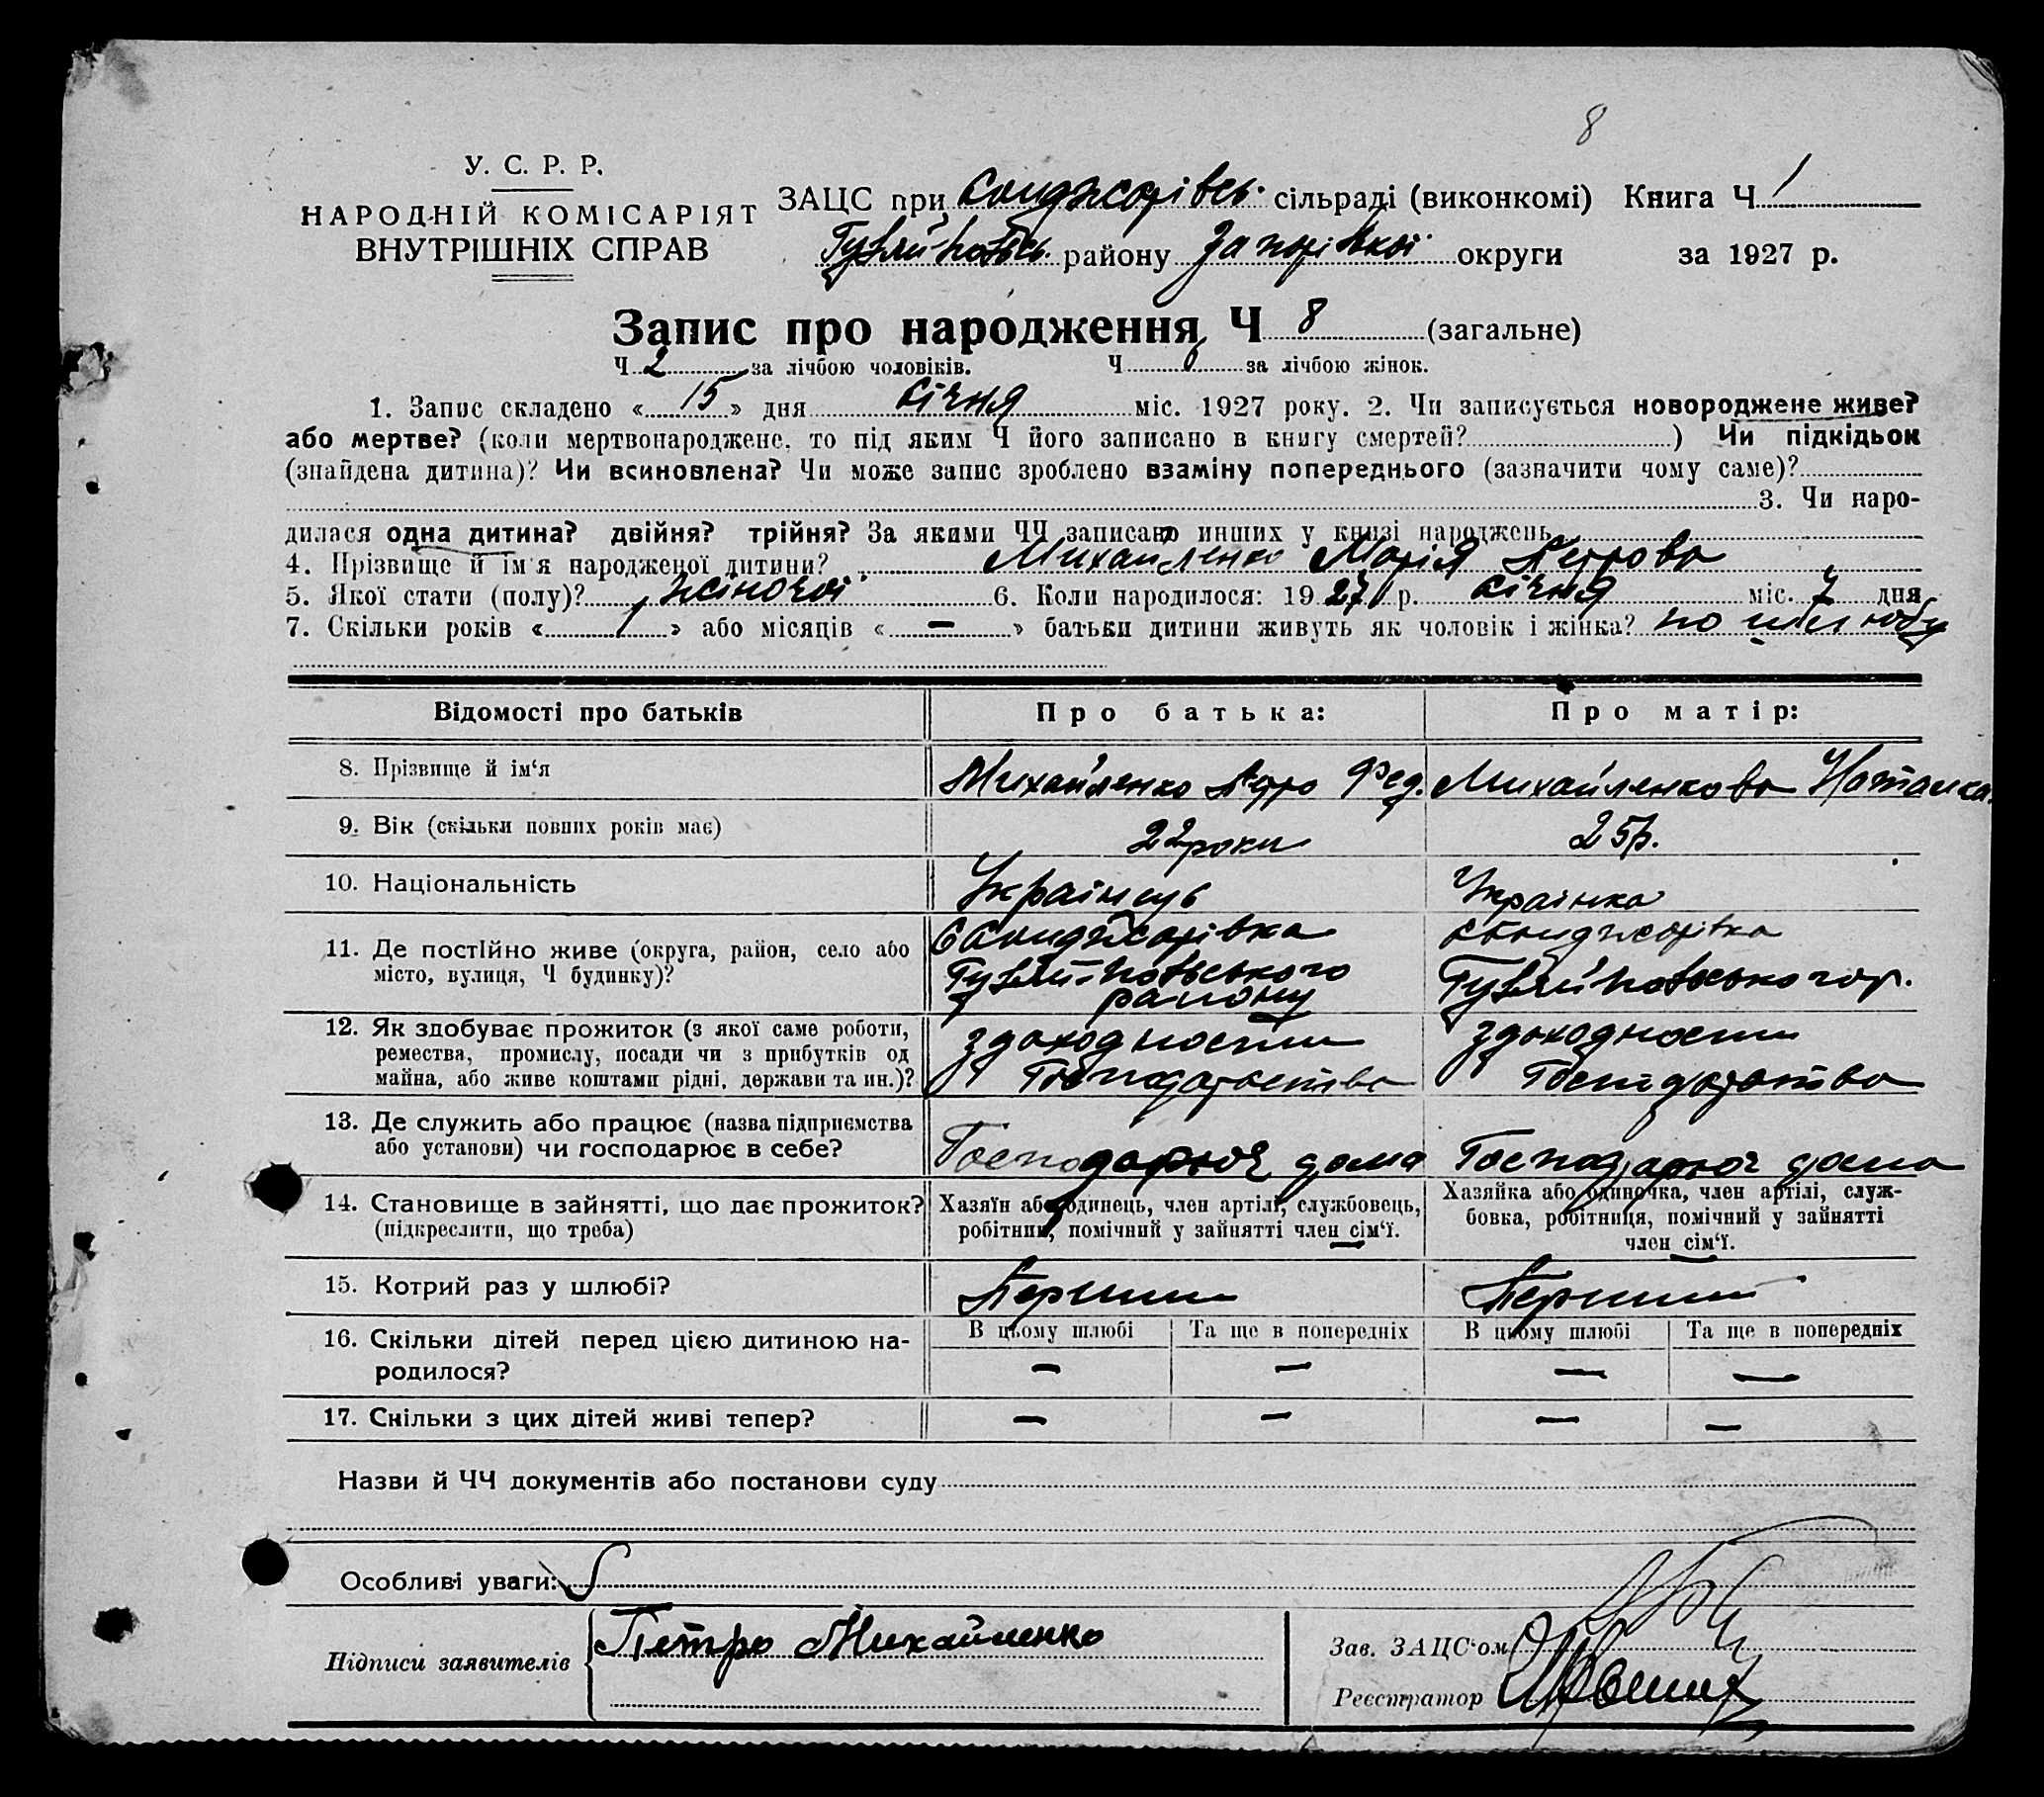 8
У. С. Р. Р.
НАРОДНІЙ КОМІСАРІЯТ
ВНУТРІШНІХ СПРАВ
ЗАЦС при Санджарівсь. сільраді (виконкомі) Книга Ч 1
району Запорізької округи за 1927 р.
Запис про народження Ч 8 (загальне)
Ч 2 за лічбою чоловіків. Ч 6 за лічбою жінок.
1. Запис складено « 15 » дня січня міс. 1927 року. 2. Чи записується новороджене живе?
або мертве? (коли мертвонароджене, то під яким Ч його записано в книгу смертей? ) Чи підкідьок
(знайдена дитина)? Чи всиновлена? Чи може запис зроблено взаміну попереднього (зазначити чому саме)?
3. Чи наро-
дилася одна дитина? двійня? трійня? За якими ЧЧ записано инших у книзі народжень
4. Прізвище й ім'я народженої дитини? Михайленко Марія Петрова
5. Якої стати (полу)? жіночої 6. Коли народилося: 1927 р. січня міс. 7 дня
7. Скільки років « 1 » або місяців « — » батьки дитини живуть як чоловік і жінка? по шлюбу
Відомості про батьків Про батька: Про матір:
8. Прізвище й ім'я Михайленко Петро Фед. Михайленкова Наталка
9. Вік (скільки повних років має) 22 роки 25 р.
10. Національність Українець Українка
11. Де постійно живе (округа, район, село або
місто, вулиця, Ч будинку)?
району
12. Як здобуває прожиток (з якої саме роботи,
ремества, промислу, посади чи з прибутків од
майна, або живе коштами рідні, держави та ин.)?
здоходности Господарства здоходности Господарства
13. Де служить або працює (назва підприємства
або установи) чи господарює в себе?
Господарює дома Господарює дома
14. Становище в зайнятті, що дає прожиток?
(підкреслити, що треба)
Хазяїн або одинець, член артілі, службовець,
робітник, помічний у зайнятті член сім'ї.
Хазяйка або одиночка, член артілі, служ-
бовка, робітниця, помічний у зайнятті
член сім'ї.
15. Котрий раз у шлюбі? Перший Перший
16. Скільки дітей перед цією дитиною на-
родилося?
В цьому шлюбі Та ще в попередніх В цьому шлюбі Та ще в попередніх
— — — —
17. Скільки з цих дітей живі тепер? — — — —
Назви й ЧЧ документів або постанови суду
Особливі уваги:
Підписи заявителів Петро Михайленко
Зав. ЗАЦС'ом
Реєстратор